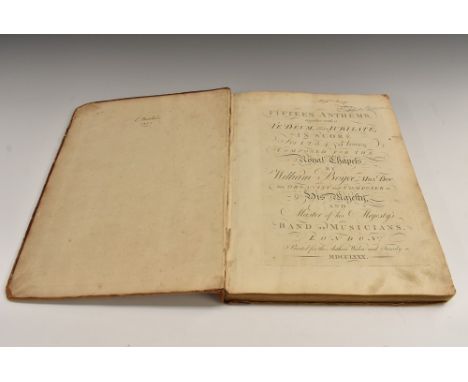 FIFTEEN ANTHEMS,
together with a
TE DEUM, and JUBILATE,
IN SCORE
for 1, 2, 3, 4, & 5 Voices
COMPOSED FOR THE
Royal Chapels
BY
William Boyce, Mus. Doc.
late ORGANIST and COMPOSER to
His Majesty,
AND
Master of his Majesty's
BAND of MUSICIANS.
LONDON:
Printed for the Author's Widow and Family
MDCCLXXX.